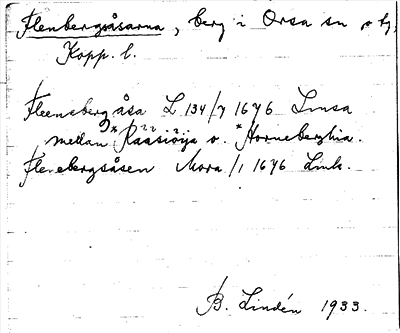 Flenbergsåsarna, berg i Orsa sn o tg,
Kopp. l.
Fleensberg åsa L 134/7 1676 Linsa
mellan Raasiöijs o. Horneberghia.
Flenebergsåsen Mora /1 1676 Link.
B. Lindén 1933.